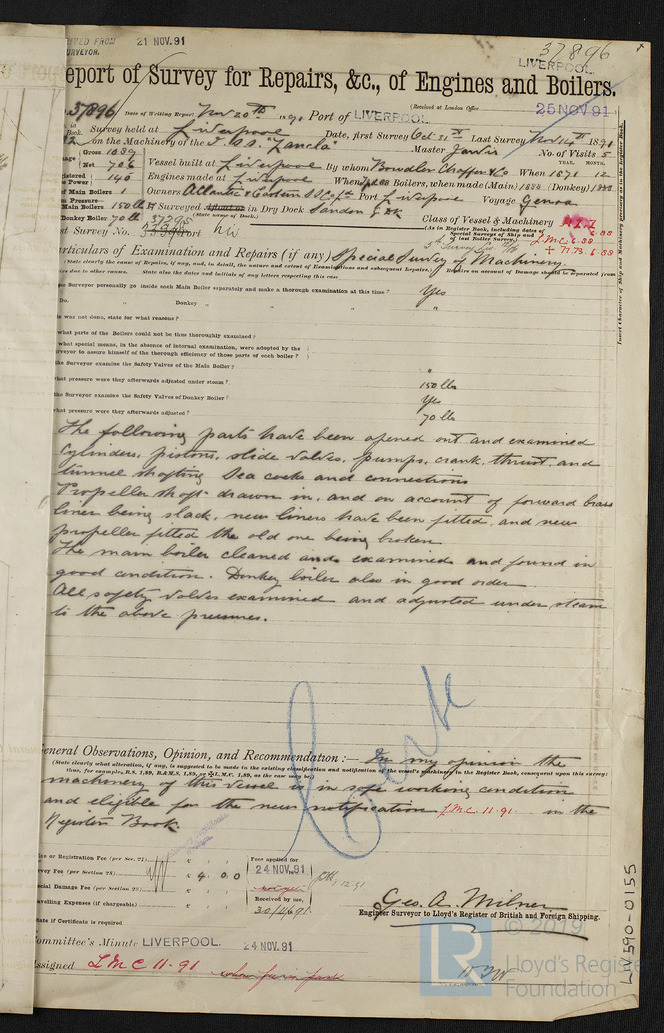 37896
21 NOV. 91
LIVERPOOL
eport of Survey for Repairs, &c., of Engines and Boilers.
37896 Date of Writing Report Nov 20th 1891 Port of LIVERPOOL (Received at London Office 25 NOV 91
Survey held at Liverpool Date, first Survey Oct 31st Last Survey Nov 14th 1891
on the Machinery of the Master Jarvis No. of Visits 5
Gross 1039
Net 706 Vessel built at Liverpool By whom When 1871 12
140 Engines made at Liverpool When Boilers, when made (Main) 1884 (Donkey)
of Main Boilers 1 Owners Atlantic & Eastern S.S. Co Ld Port Liverpool Voyage Genoa
Main Boilers 150 lb If Surveyed Afloat or in Dry Dock Sandon G. Dk
Donkey Boiler 70 lb (State name of Dock.) Class of Vessel & Machinery
st Survey No. Port (As in Register Book, including dates of Special Surveys of Ship and of last Boiler Survey.) L.M.C. 6.88
+ N.B. 6.88
articulars of Examination and Repairs (if any) Special Survey of Machinery.
(State clearly the cause of Repairs, if any, and, in detail, the nature and extent of Examinations and subsequent Repairs.) Repairs on account of Damage should be separated from
irs due to other causes. State also the dates and initials of any letters respecting this case.
e Surveyor personally go inside each Main Boiler separately and make a thorough examination at this time? Yes
Do. " Donkey " " " "
is was not done, state for what reasons?
what parts of the Boilers could not be thus thoroughly examined?
what special means, in the absence of internal examination, were adopted by the
rveyor to assure himself of the thorough efficiency of those parts of each boiler?
he Surveyor examine the Safety Valves of the Main Boiler? "
hat pressure were they afterwards adjusted under steam? 150 lbs
he Surveyor examine the Safety Valves of Donkey Boiler? Yes
hat pressure were they afterwards adjusted? 70 lb
The following parts have been opened out and examined
Cylinders, pistons, slide valves, pumps, crank, thrust, and
tunnel shafting Sea cocks and connections
Propeller shaft drawn in, and on account of forward brass
liner being slack, new liners have been fitted, and new
propeller fitted the old one being broken
The main boiler cleaned and examined and found in
good condition. Donkey boiler also in good order
All safety valves examined and adjusted under steam
to the above pressures.
eneral Observations, Opinion, and Recommendation:— In my opinion the
(State clearly what alteration, if any, is suggested to be made in the existing classification and notification of the vessel's machinery in the Register Book, consequent upon this survey:
thus, for example, B.S. 1,89, B.&M.S. 1,89, or ✠L.M.C. 1,89, as the case may be.)
machinery of this vessel is in safe working condition
and eligible for the new notification L.M.C. 11-91 in the
Register Book.
ce or Registration Fee (per Sec. 27) £ : : Fees applied for
24 NOV. 91
rvey Fee (per Section 28) £ 4 . 0 . 0
ecial Damage Fee (per Section 28) £ : : Received by me,
avelling Expenses (if chargeable) £ : :
Geo. A. Milner
Engineer Surveyor to Lloyd's Register of British and Foreign Shipping.
ate if Certificate is required
ommittee's Minute LIVERPOOL. 24 NOV. 91
ssigned L M C 11-91
Insert Character of Ship and Machinery precisely as in the Register Book.
LV590-0155
© 2019
LR
Lloyd's Register
Foundation